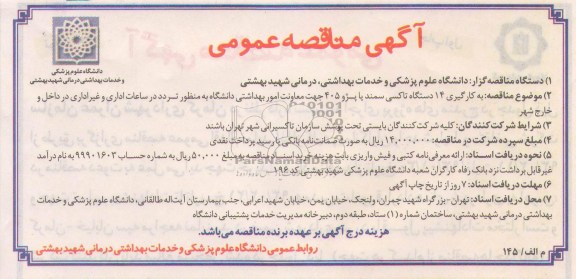 آگهی مناقصه عمومی
دانشگاه علوم پزشکی
و خدمات بهداشتی درمانی شهید بهشتی
۱) دستگاه مناقصه گزار: دانشگاه علوم پزشکی و خدمات بهداشتی، درمانی شهید بهشتی
۲) موضوع مناقصه: به کارگیری ۱۴ دستگاه تاکسی سمند یا پژو ۴۰۵ جهت معاونت امور بهداشتی دانشگاه به منظور تردد در ساعات اداری و غیر اداری در داخل و
خارج شهر
۳) شرایط شرکت کنندگان: کلیه شرکت کنندگان بایستی تحت پوشش سازمان تاکسیرانی شهر تهران باشند
۴) مبلغ سپرده شرکت در مناقصه: ۱۴,۰۰۰,۰۰۰ ریال به صورت ضمانتنامه بانکی یا رسید پرداخت نقدی
۵) نحوه دریافت اسناد: ارائه معرفی نامه کتبی و فیش واریزی بابت هزینه خرید اسناد مناقصه به مبلغ ۵۰,۰۰۰ ریال به شماره حساب ۹۹۹۰۱۶۰۳ به نام درآمد
غیر قابل برداشت نزد بانک رفاه کارگران شعبه دانشگاه علوم پزشکی شهید بهشتی کد ۱۹۶
۶) مهلت دریافت اسناد: ۷ روز از تاریخ چاپ آگهی
۷) محل دریافت اسناد: تهران - بزرگراه شهید چمران، ولنجک، خیابان یمن، خیابان شهید اعرابی، جنب بیمارستان آیت اله طالقانی، دانشگاه علوم پزشکی و خدمات
بهداشتی درمانی شهید بهشتی، ساختمان شماره (۱) ستاد، طبقه دوم، دبیرخانه مدیریت خدمات پشتیبانی دانشگاه
هزینه درج آگهی بر عهده برنده مناقصه می‌باشد.
م الف/ ۱۴۵
روابط عمومی دانشگاه علوم پزشکی و خدمات بهداشتی درمانی شهید بهشتی
ParsNamadData